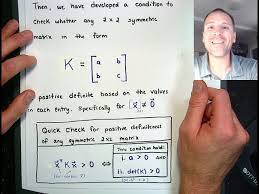 Then, we have developed a condition to
check whether any 2x2 symmetric
matrix in the form
K = [a b
b c]
positive definite based on the values
in each entry. Specifically for x ≠ 0
Quick Check for positive definiteness
of any symmetric 2x2 matrix
This condition holds:
xᵀKx > 0 ⇔ i. a > 0 AND
ii. det(K) > 0